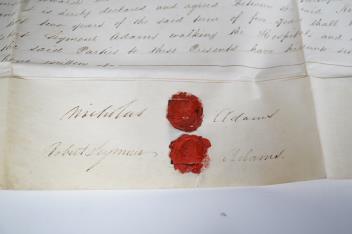 is hereby declared and agreed between the said
two years of the said term of five years shall
Seymour Adams walking the Hospital, and
the said Parties to these Presents have hereunto set
Nicholas Adams
Robert Seymour Adams.